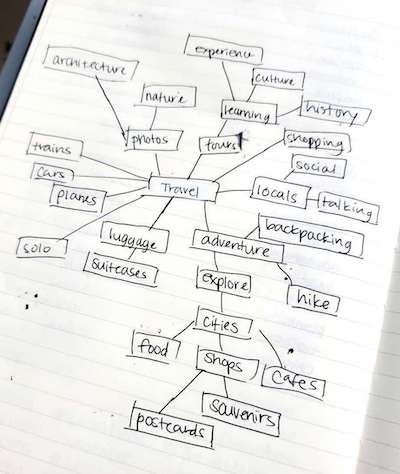 experience
architecture
culture
nature
learning
history
photos
tours
shopping
trains
social
cars
Travel
locals
talking
planes
backpacking
luggage
adventure
solo
suitcases
explore
hike
cities
food
shops
cafes
souvenirs
postcards